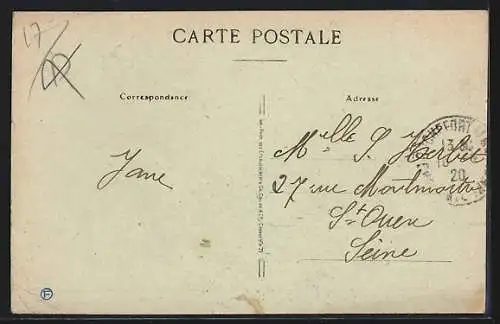 17
CARTE POSTALE
Correspondance
Adresse
Jane
Melle S. Herbet
27 rue Montmartre
St Ouen
Seine
ROCHEFORT
13
20